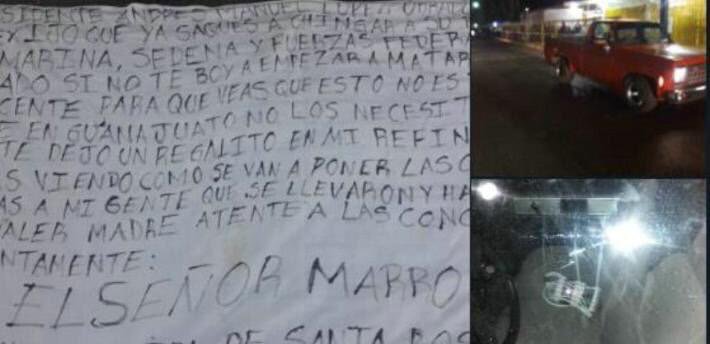 SIDENTE ANDRES MANUEL LOPEZ OBRAD
IJO QUE YA SAQUES A CHINGAR A SU
MARINA, SEDENA Y FUERZAS FEDER
ADO SI NO TE BOY A EMPEZAR A MATAR
CENTE PARA QUE VEAS QUE ESTO NO ES
E EN GUANAJUATO NO LOS NECESIT
TE DEJO UN REGALITO EN MI REFIN
S VIENDO COMO SE VAN A PONER LAS C
AS A MI GENTE QUE SE LLEVARON Y HA
VALER MADRE ATENTE A LAS CONC
NTAMENTE:
EL SEÑOR MARRO
DE SANTA ROS